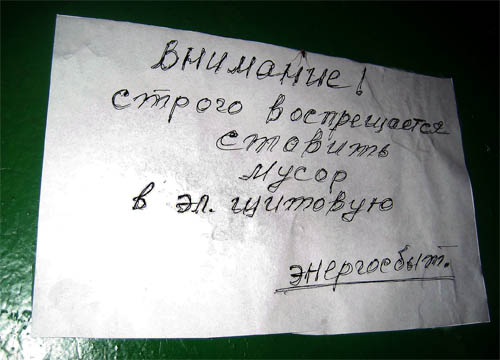 внимание!
строго воспрещается
ставить
мусор
в эл. щитовую
энергосбыт.